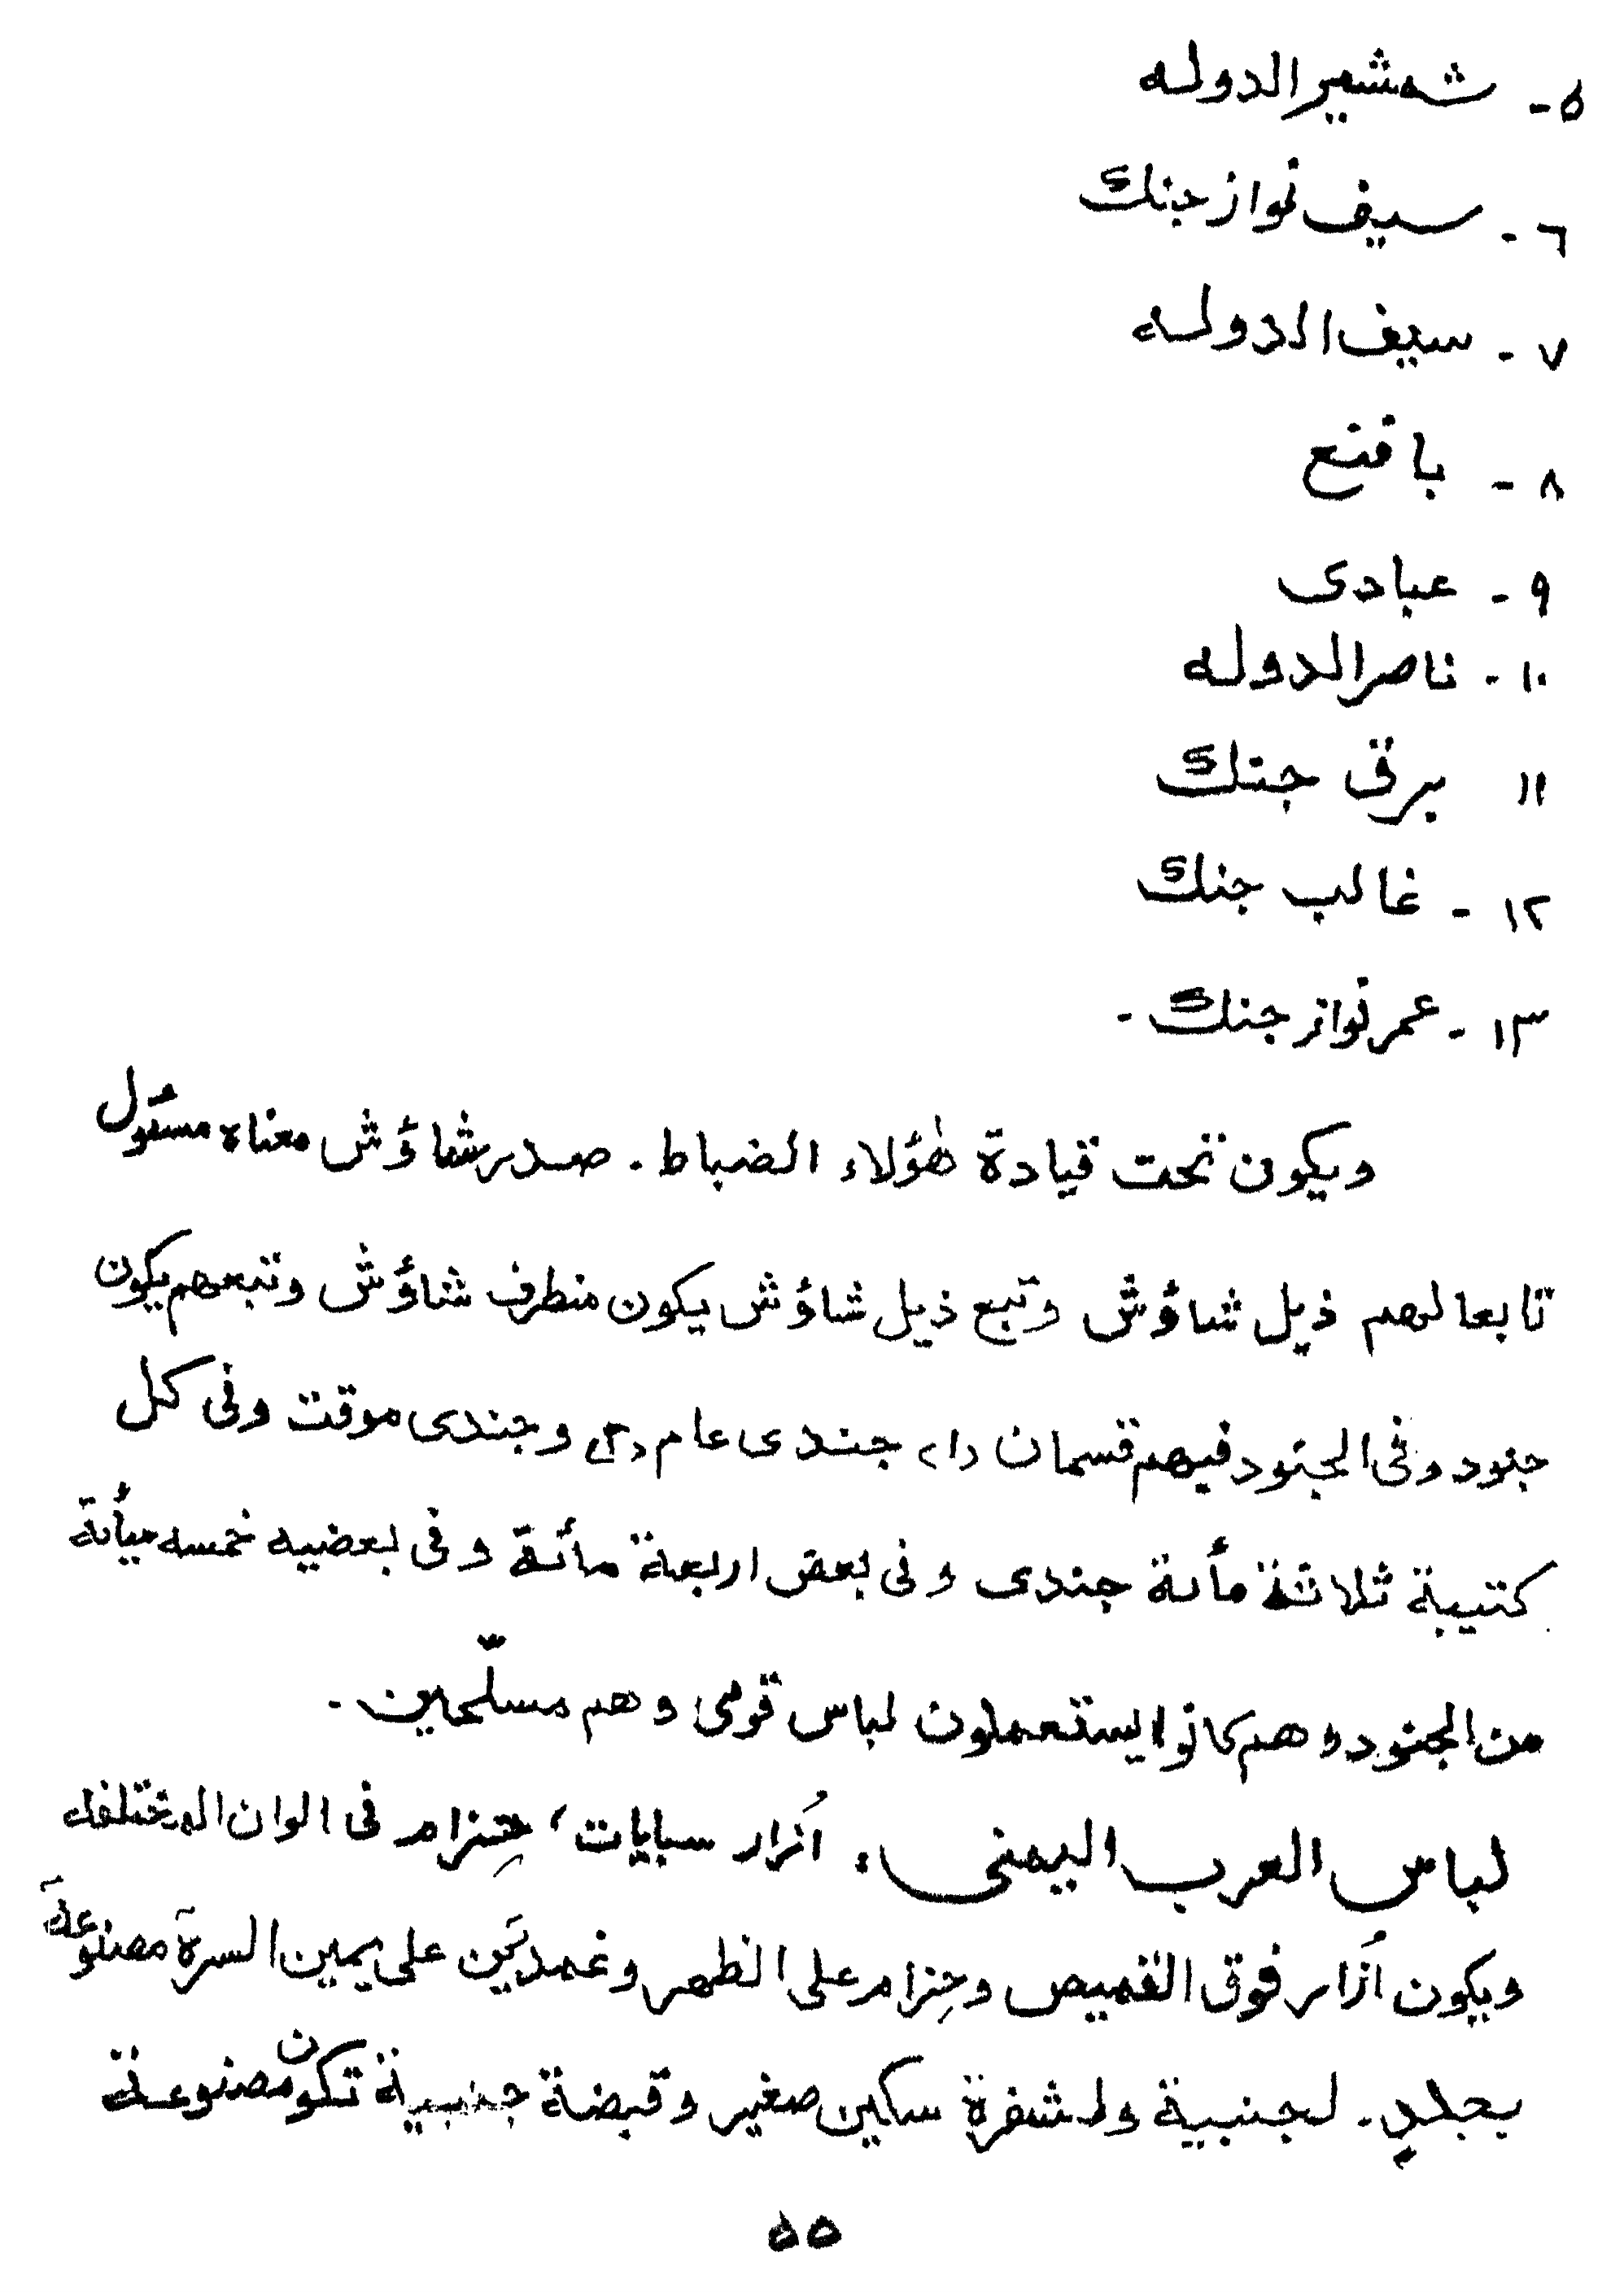 ٥- شمشير الدوله
٦- سيف نواز جنك
٧- سيف الدوله
٨- باقنع
٩- عبادى
١٠- ناصر الدوله
١١ برق جنك
١٢- غالب جنك
١٣- عمر نواز جنك -
ويكون تحت قيادة هٰؤلاء الضباط . صدر شاؤش معناه مسئول
تابعا لهم ذيل شاؤش وتبع ذيل شاؤش يكون منطرف شاؤش وتبعهم يكون
جنود وفى الجنود فيهم قسمان (١) جندى عام (٢) وجندى موقت وفى كل
كتيبة ثلاثة مأىة جندى وفى بعض اربعة مائة وفى بعضيه خمسه ميأىة
من الجنود وهم كانوا يستعملون لباس قومى وهم مسلّحين -
لباس العرب اليمنى : اُزار سبايات ، حِزام فى الوان المختلفه
ويكون اُزار فوق القميص وحِزام على الظهر وغمدتَين على يمين السرة مصنوعة
بجلدٍ . لجنبية ولشفرة سكين صغير وقبضة جنبية تكون مصنوعة
٥٥